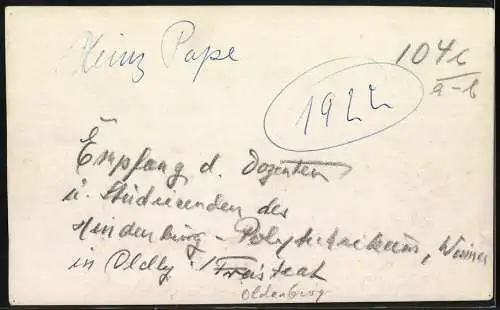 Heinz Pape
104c
a-b
1922
Empfang d. Dozenten
u. Studierenden des
Hindenburg-Polytechnikums,
in Oldbg i/Freistaat
Oldenburg